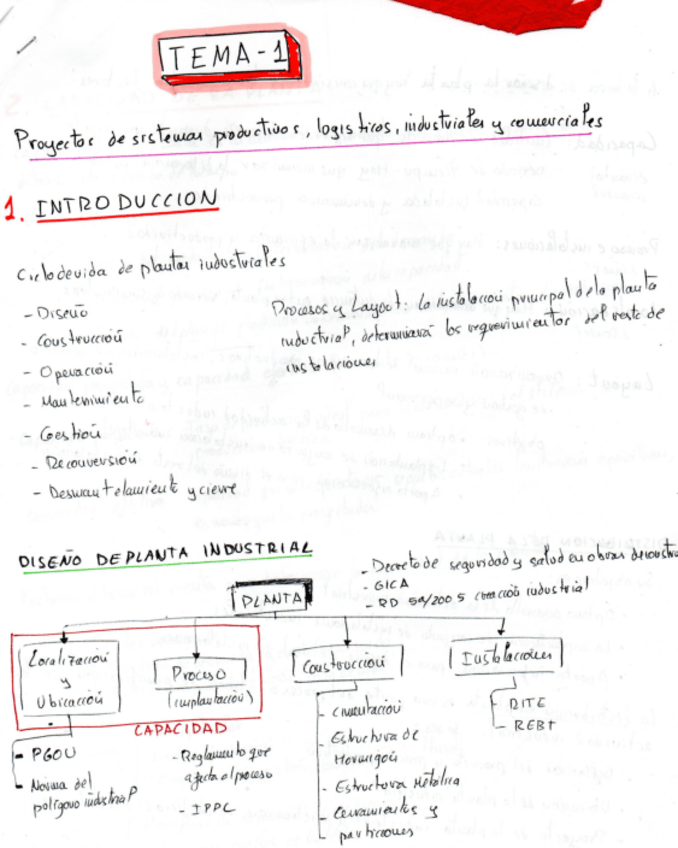 TEMA-1
Proyectos de sistemas productivos, logisticos, industriales y comerciales
1. INTRODUCCION
Ciclo de vida de plantas industriales
- Diseño
- Construcción
- Operación
- Mantenimiento
- Gestión
- Reconversión
- Desmantelamiento y cierre
Procesos y Layout: la instalación principal de la planta
industrial, determinará los requerimientos del resto de
instalaciones
DISEÑO DE PLANTA INDUSTRIAL
- Decreto de seguridad y salud en obras de
- GICA
- RD 59/2005 industrial
PLANTA
Localización
y
Ubicación
Proceso
(implantación)
CAPACIDAD
Construcción
Instalaciones
- PGOU
- Norma del
polígono industrial
- Reglamento que
afecta al proceso
- IPPC
- cimentación
- Estructura de
Hormigón
- Estructura Metálica
- Cerramientos y
particiones
- RITE
- REBT